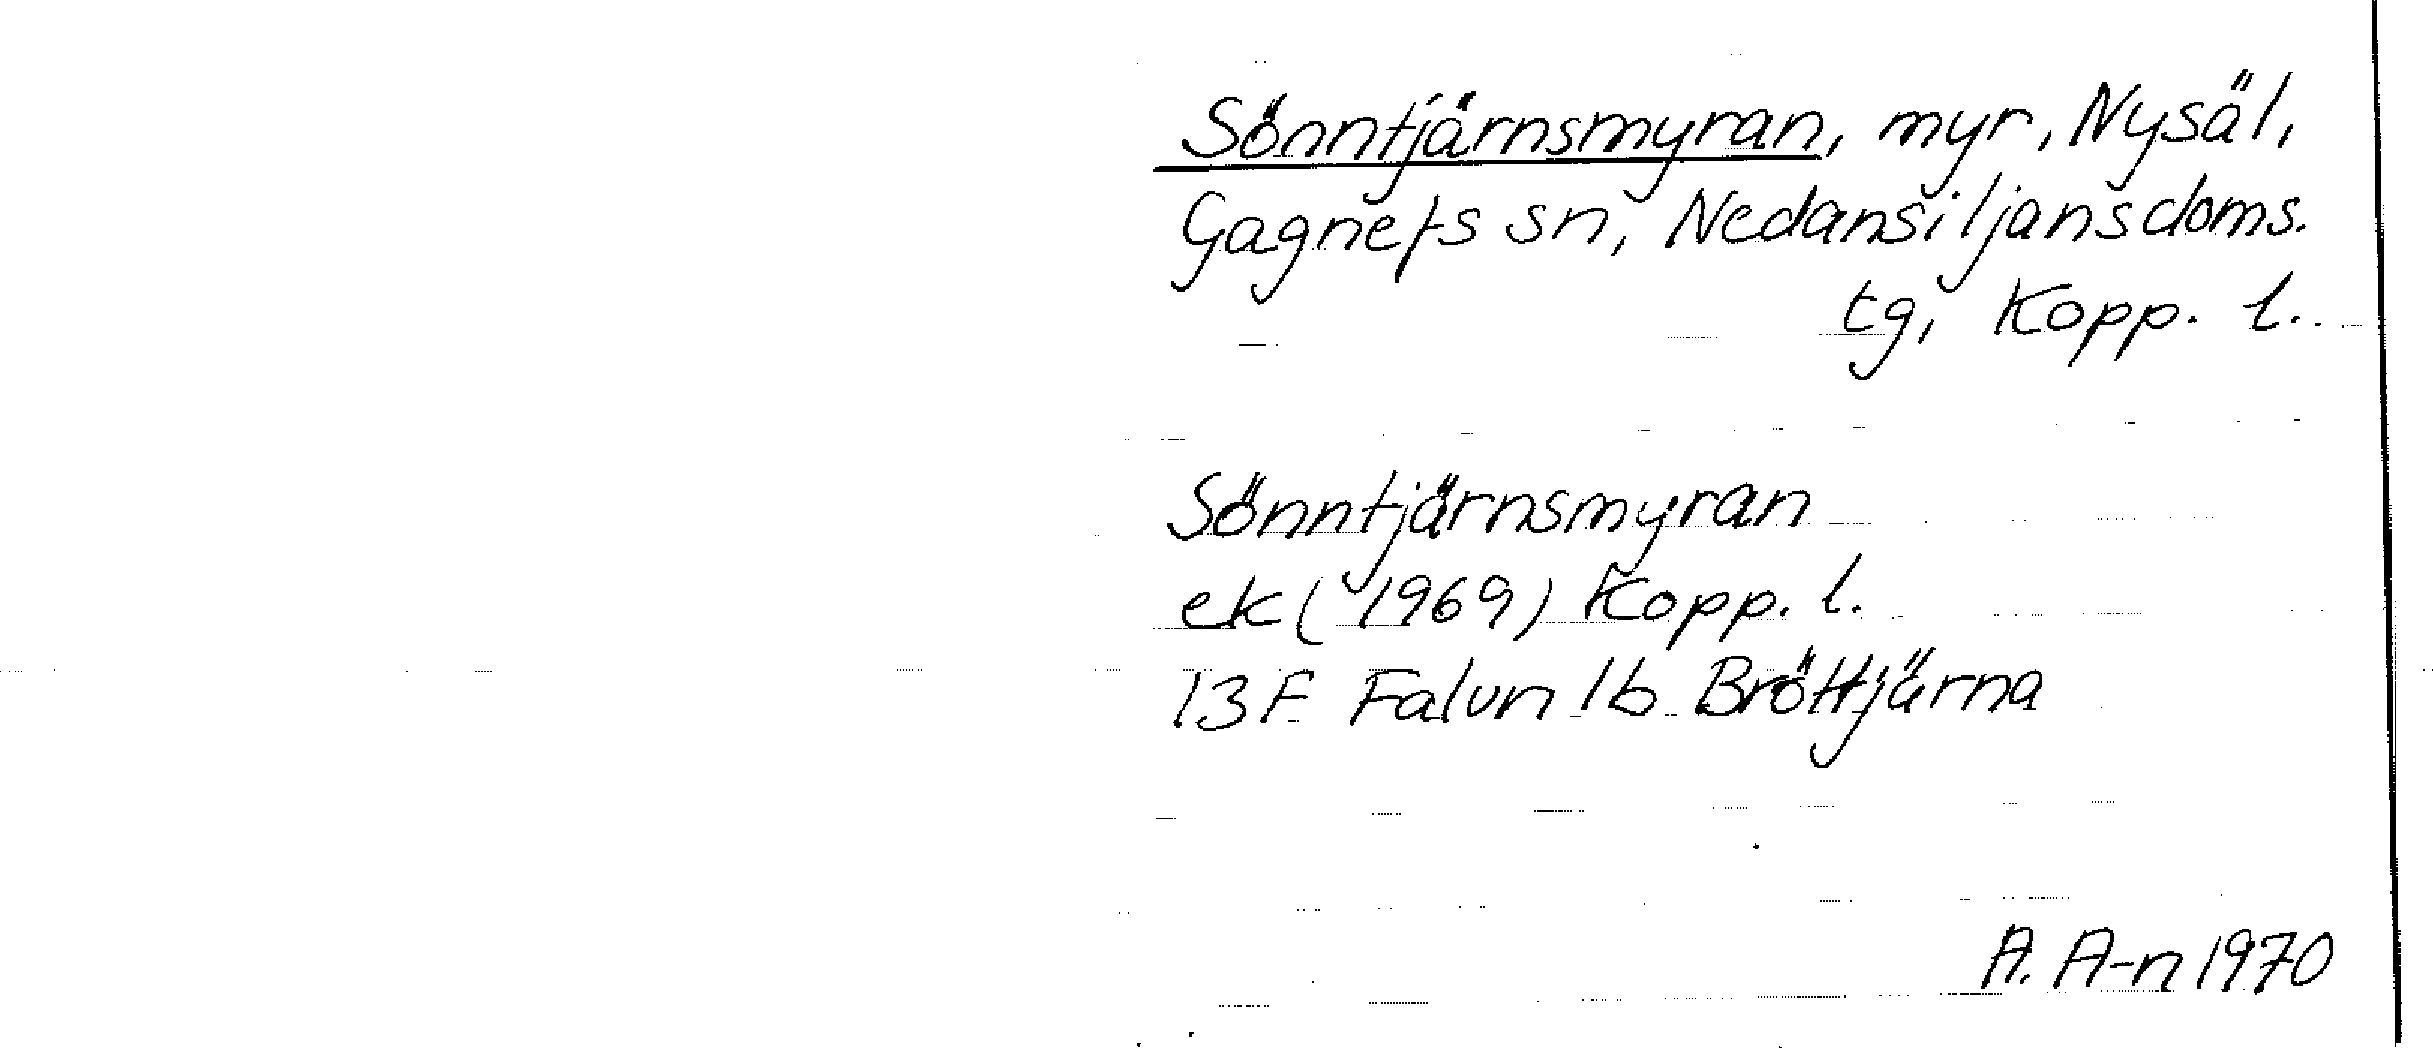 Sönntjärnsmyran, myr, Nysäl,
Gagnefs sn, Nedansiljans doms.
tg, Kopp. l.
Sönntjärnsmyran
ek (1969) Kopp. l.
13F Falun 1b Bröttjärna
A. A-n 1970